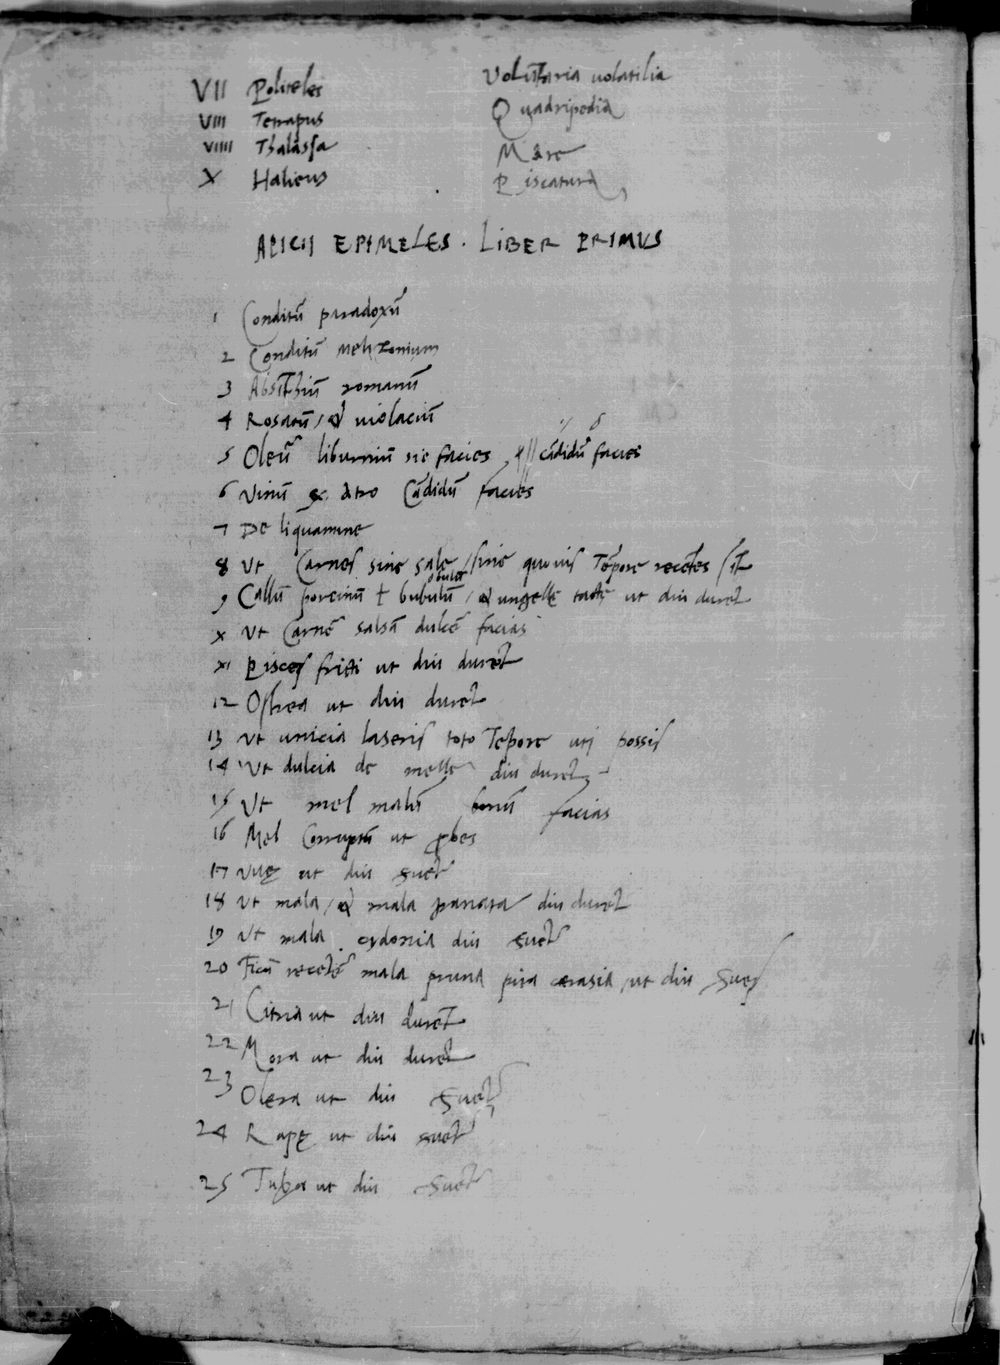 VII Politeles Volūtaria uolatilia
VIII Tetrapus Quadripedia
VIIII Thalassa Mare
X Halieus Piscatura
APICII EPIMELES . LIBER PRIMUS
1 Conditū paradoxū
2 Conditū melizomum
3 Absīthiū romanū
4 Rosatū / & uiolaciū
5 Oleū liburnicū sic facies cādidū facies
6 Vinū ex atro Cādidū facies
7 De liquamine
8 Ut Carnes sine sale / sine quouis Tēpore recētes sīt
9 Callū porcinū t bubulū / & ungellę coctę ut diu durēt
x Ut Carnē salsā dulcē facias
xi Pisces fricti ut diu durēt
12 Ostrea ut diu durēt
13 Ut uncia laseris toto Tēpore uti possis
14 Ut dulcia de melle diu durēt
15 Ut mel malū bonū facias
16 Mel Corruptū ut ꝓbes
17 Vuę ut diu suēt
18 Ut mala / & mala granata diu durēt
19 Ut mala cydonia diu suētur
20 Ficū recētē mala pruna pira cerasia / ut diu sues
21 Citria ut diu durēt
22 Mora ut diu durēt
23 Olera ut diu suēt
24 Rapę ut diu suēt
25 Tubera ut diu suēt